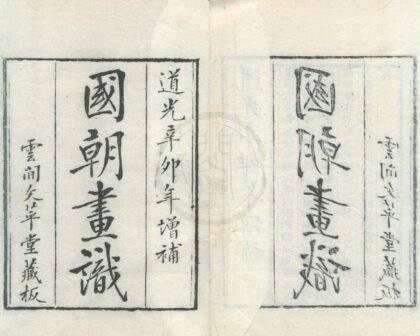 雲間文萃堂藏板
國朝畫識
道光辛卯年增補
國朝畫識
雲間文萃堂藏板